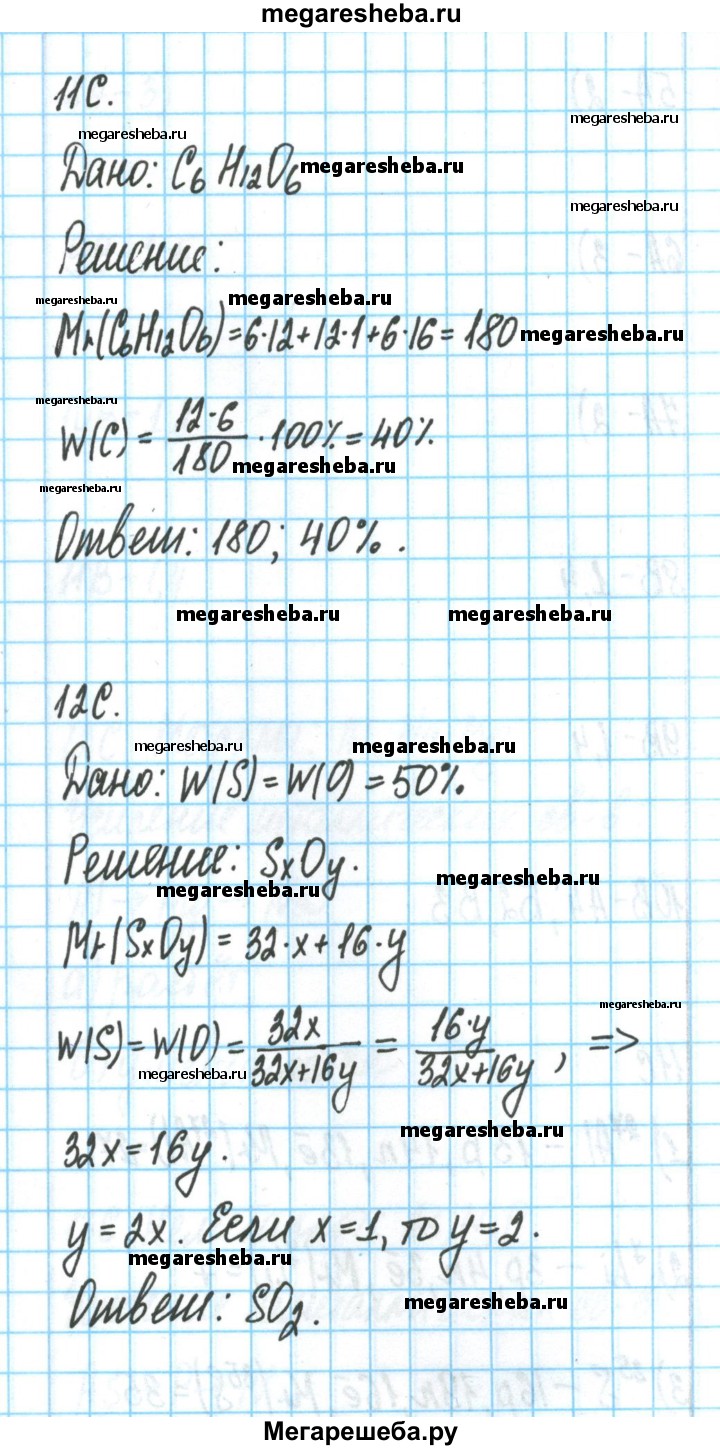 megaresheba.ru
11С.
megaresheba.ru
megaresheba.ru
Дано: C₆H₁₂O₆
megaresheba.ru
megaresheba.ru
Решение:
megaresheba.ru
megaresheba.ru
Mr(C₆H₁₂O₆)=6·12+12·1+6·16=180
megaresheba.ru
megaresheba.ru
W(C) = (12·6)/180 · 100% = 40%
megaresheba.ru
megaresheba.ru
Ответ: 180; 40%.
megaresheba.ru megaresheba.ru
12С.
megaresheba.ru megaresheba.ru
Дано: W(S)=W(O)=50%.
Решение: SxOy.
megaresheba.ru megaresheba.ru
Mr(SxOy) = 32·x+16·y
megaresheba.ru
W(S)=W(O)= 32x/(32x+16y) = 16·y/(32x+16y), =>
megaresheba.ru
megaresheba.ru
32x=16y.
y=2x. Если x=1, то y=2.
megaresheba.ru
megaresheba.ru
Ответ: SO₂.
Мегарешеба.ру